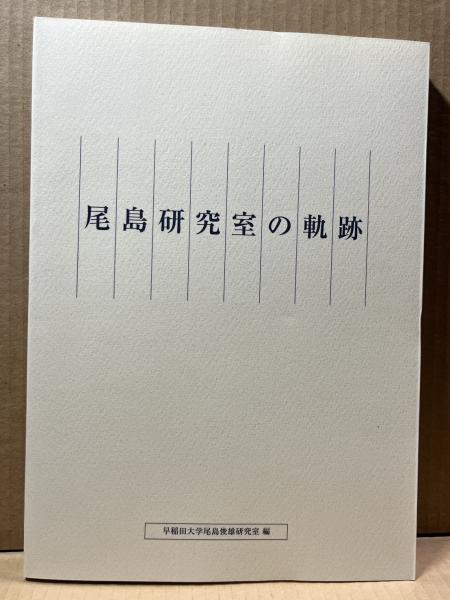 尾島研究室の軌跡
早稲田大学尾島俊雄研究室 編